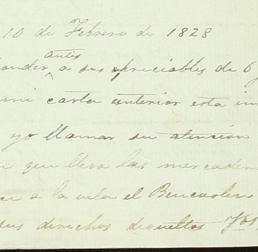 10 de Febrero de 1828
antes
a sus apreciables de 6
mi carta anterior esta
yo llamar su atencion
que lleva las
a la vela el
sus derechos devueltos